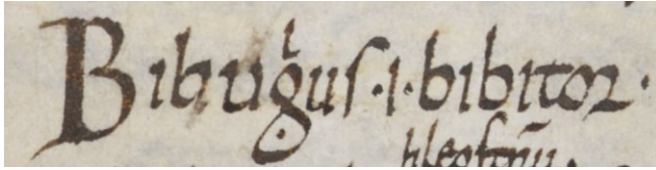 Bibulus ·i· bibitor·